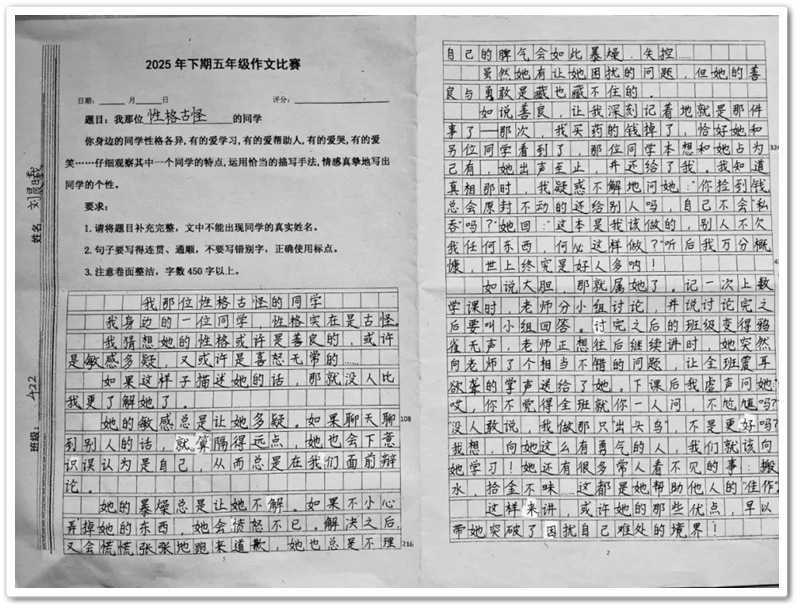 2025 年下期五年级作文比赛
日期：______ 月____日 评分：
题目：我那位 性格古怪 的同学
你身边的同学性格各异,有的爱学习,有的爱帮助人,有的爱哭,有的爱
笑……仔细观察其中一个同学的特点,运用恰当的描写手法,情感真挚地写出
同学的个性。
要求：
1. 请将题目补充完整，文中不能出现同学的真实姓名。
2. 句子要写得连贯、通顺，不要写错别字，正确使用标点。
3. 注意卷面整洁，字数 450 字以上。
姓名
班级： 422
我那位性格古怪的同学
我身边的一位同学，性格实在是古怪。
我猜想她的性格或许是善良的、或许
是敏感多疑，又或许是喜怒无常的……
如果这样子描述她的话，那就没人比
我更了解她了。
她的敏感总是让她多疑。如果聊天聊 108
到别人的话，就算隔得远点，她也会下意
识误认为是自己，从而总是在我们面前辩
论。
她的暴燥总是让她不解。如果不小心
弄掉她的东西，她会愤怒不已。解决之后，
又会慌慌张张地跑来道歉，她也总是不理 216
1
自己的脾气会如此暴燥、失控……
虽然她有让她困扰的问题，但她的善
良与勇敢是藏也藏不住的。
如说善良，让我深刻记着地就是那件
事了——那次，我买药的钱掉了，恰好她和
另位同学看到了，那位同学本想和她占为 324
己有，她出声至止，并还给了我。我知道
真相那时，我疑惑不解地问她："你捡到钱
总会原封不动的还给别人吗，自己不会'私
吞'吗？"她回："这本是我该做的，别人不欠
我任何东西，何必这样做？"听后我万分概
慷，世上终究是好人多呐！
如说大胆，那就属她了。记一次上数
学课时，老师分小组讨论，并说讨论完之
后要叫小组回答。讨完之后的班级变得鸦
雀无声，老师正想往后继续讲时，她突然
向老师了个相当不错的问题，让全班震耳
欲聋的学声送给了她。下课后我虚声问她：
"哎，你不觉得全班就你一人问，不尬尴吗？"
"没人敢说，我做那只'出头鸟'，不是更好吗？"
我想，向她这么有勇气的人，我们就该向
她学习！她还有很多常人看不见的事：搬
水、拾金不昧……这都是她帮助他人的"佳作"。
这样来讲，或许她的那些优点，早以
带她突破了困扰自己难处的境界！
2